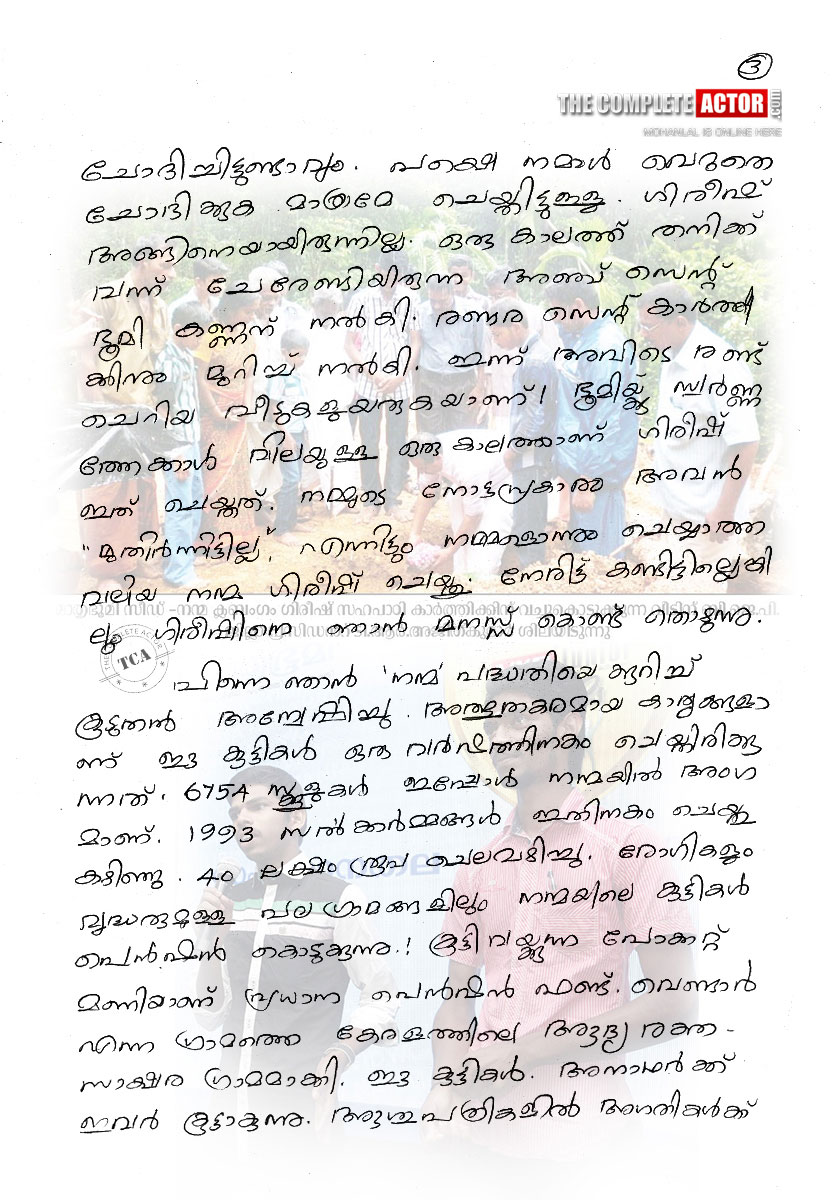 3
THE COMPLETE ACTOR .com
MOHANLAL IS ONLINE HERE
ചോദിച്ചിട്ടുണ്ടാവും. പക്ഷെ നമ്മൾ വെറുതെ
ചോദിക്കുക മാത്രമേ ചെയ്തിട്ടുള്ളൂ. ഗിരീഷ്
അങ്ങിനെയായിരുന്നില്ല. ഒരു കാലത്ത് തനിക്ക്
വന്ന് ചേരേണ്ടിയിരുന്ന അഞ്ച് സെന്റ്
ഭൂമി കണ്ണന് നൽകി. രണ്ടര സെന്റ് കാർത്തി
ക്കിനും മുറിച്ച് നൽകി. ഇന്ന് അവിടെ രണ്ട്
ചെറിയ വീടുകളുയരുകയാണ്! ഭൂമിയ്ക്ക് സ്വർണ്ണ
ത്തേക്കാൾ വിലയുള്ള ഒരു കാലത്താണ് ഗിരീഷ്
ഇത് ചെയ്തത്. നമ്മുടെ നോട്ടപ്രകാരം അവൻ
"മുതിർന്നിട്ടില്ല", എന്നിട്ടും നമ്മളൊന്നും ചെയ്യാത്ത
വലിയ നന്മ ഗിരീഷ് ചെയ്തു. നേരിട്ട് കണ്ടിട്ടില്ലെങ്കി
ലും ഗിരീഷിനെ ഞാൻ മനസ്സ് കൊണ്ട് തൊടുന്നു.
THE COMPLETE ACTOR TCA
പിന്നെ ഞാൻ 'നന്മ' പദ്ധതിയെ കുറിച്ച്
കൂടുതൽ അന്വേഷിച്ചു. അത്ഭുതകരമായ കാര്യങ്ങളാ
ണ് ഈ കുട്ടികൾ ഒരു വർഷത്തിനകം ചെയ്തിരിക്കു
ന്നത്. 6754 സ്ക്കൂളുകൾ ഇപ്പോൾ നന്മയിൽ അംഗ
മാണ്. 1993 സൽക്കാർമ്മങ്ങൾ ഇതിനകം ചെയ്തു
കഴിഞ്ഞു. 40 ലക്ഷം രൂപ ചെലവഴിച്ചു. രോഗികളും
വൃദ്ധരുമുള്ള പല ഗ്രാമങ്ങളിലും നന്മയിലെ കുട്ടികൾ
പെൻഷൻ കൊടുക്കുന്നു.! കൂട്ടിവയ്ക്കുന്ന പോക്കറ്റ്
മണിയാണ് പ്രധാന പെൻഷൻ ഫണ്ട്. വെണ്ടാർ
എന്ന ഗ്രാമത്തെ കേരളത്തിലെ ആദ്യ രക്ത-
സാക്ഷര ഗ്രാമമാക്കി. ഈ കുട്ടികൾ. അനാഥർക്ക്
ഇവർ കൂട്ടാകുന്നു. ആശുപത്രികളിൽ അഗതികൾക്ക്